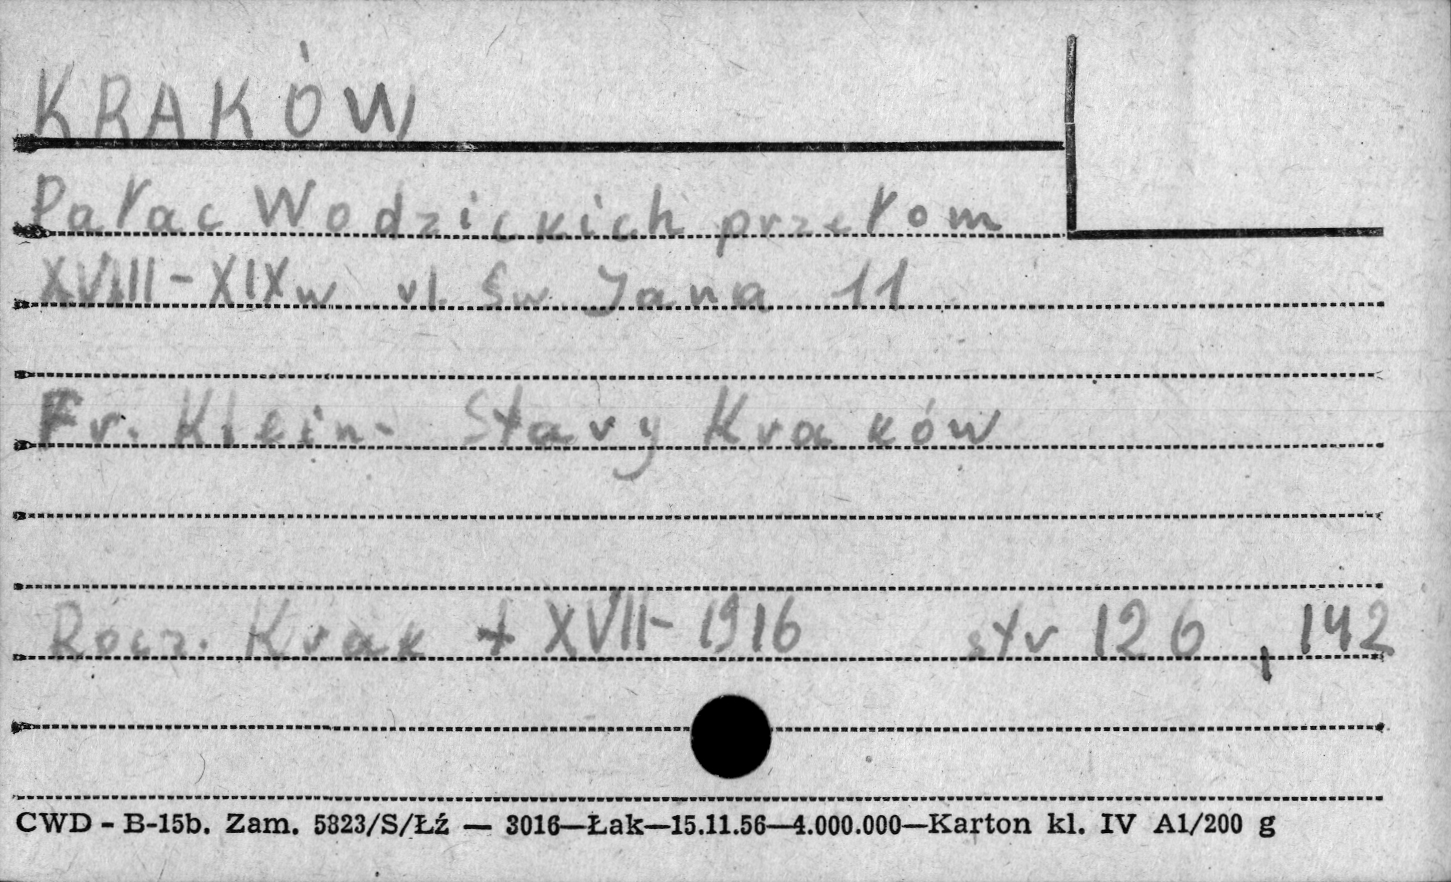 KRAKÓW
Pałac Wodzickich przełom
XVIII-XIXw ul. św. Jana 11
Fr. Klein- Stary Kraków
Rocz. Krak t XVII- 1916 str 126, 142
CWD - B-15b. Zam. 5823/S/Łź — 3016—Łak—15.11.56—4.000.000—Karton kl. IV A1/200 g